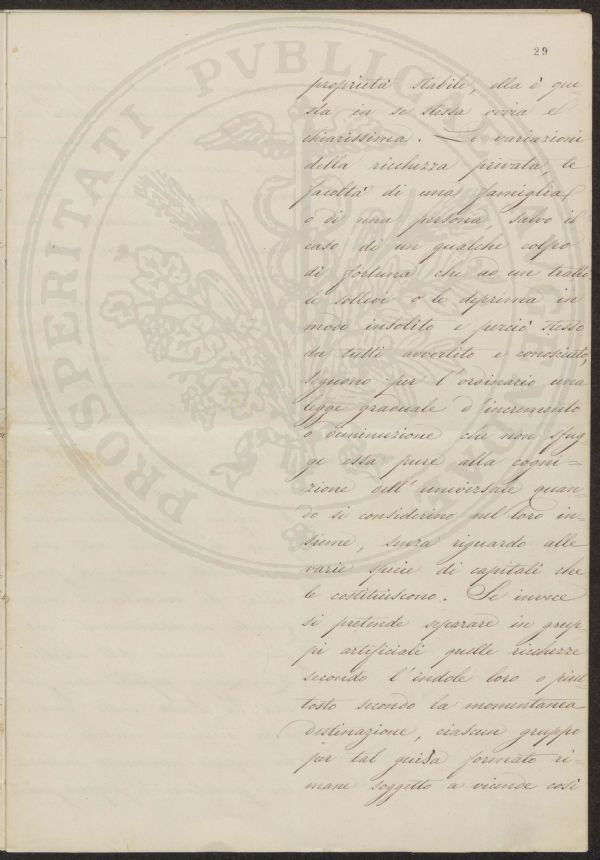 29
proprietà stabile, ella è que
sta in se stessa ovvia e
chiarissima. Le variazioni
della ricchezza privata, le
facoltà di una famiglia,
o di una persona, salvo il
caso di un qualche colpo
di fortuna che ad un tratto
le sollevi o le deprima in
modo insolito e perciò stesso
da tutti avvertito e conosciuto,
seguono per l'ordinario una
legge graduale d'incremento
o diminuzione che non sfug
ge essa pure alla cogni=
zione dell'universale quan=
do si considerino nel loro in=
sieme, senza riguardo alle
varie specie di capitali che
le costituiscono. Se invece
si pretende separare in grup
pi artificiali quelle ricchezze
secondo l'indole loro o piut
tosto secondo la momentanea
destinazione, ciascun gruppo
per tal guisa formato ri=
mane soggetto a vicende così
PROSPERITATI PVBLICAE